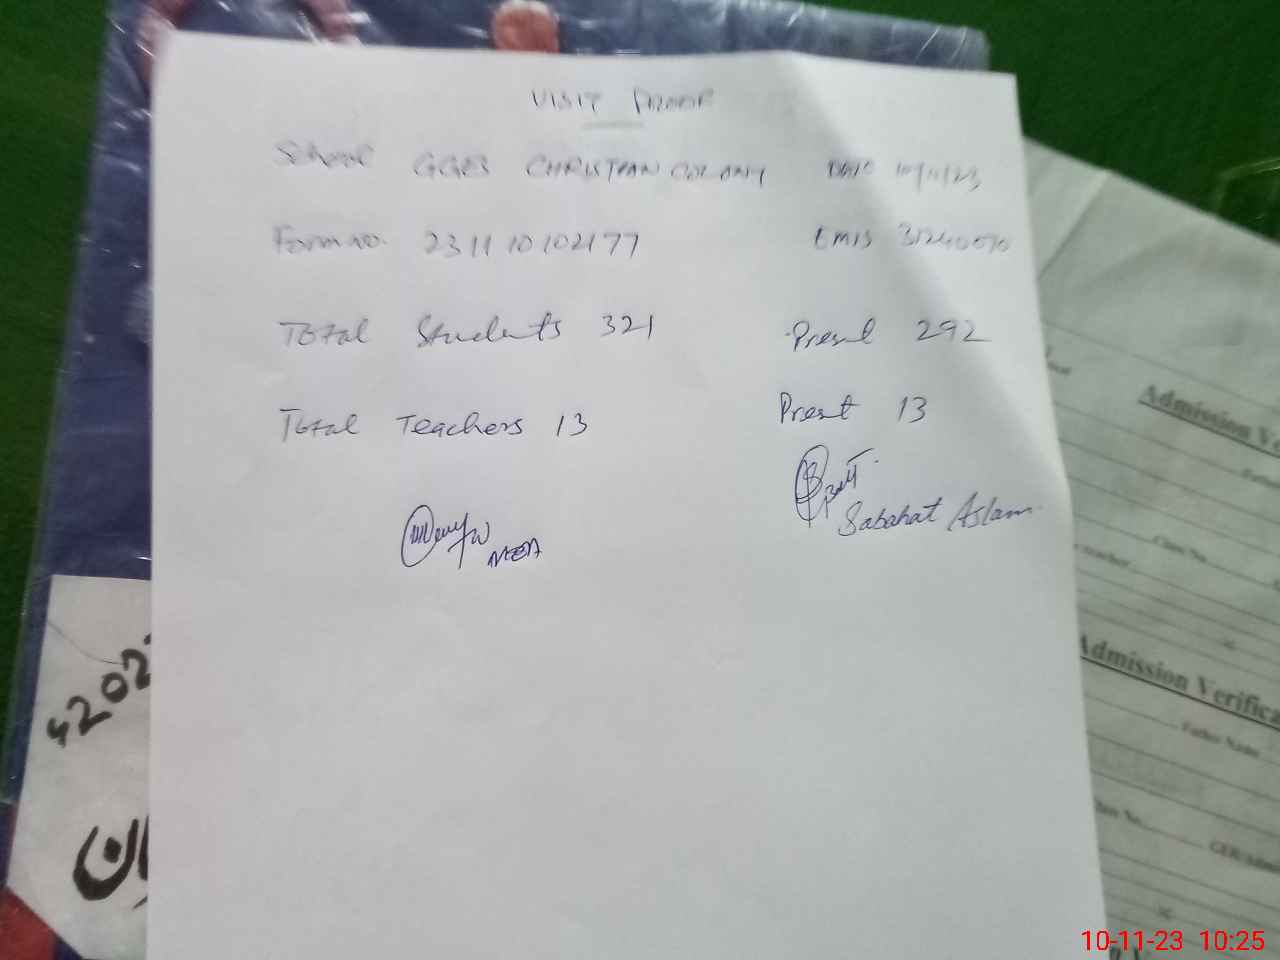 VISIT PROOF
School GGES CHRISTIAN COLONY Date 10/11/23
Form no. 231110102177 EMIS 31240070
Total Students 321 Present 292
Total Teachers 13 Present 13
Butt
Sabahat Aslam
MEA
4202
Admission Ve
Class No.
Teacher
Admission Verifica
Father Name
Class No.
10-11-23 10:25